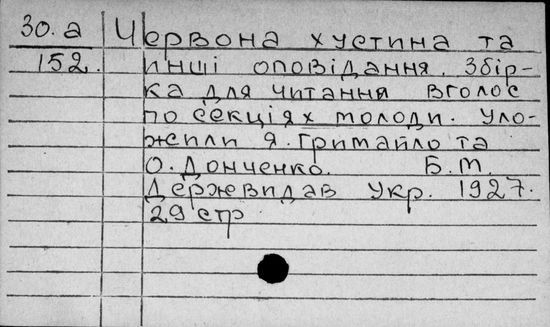 30. а Червона хустина та
152. инші оповідання. Збір-
ка для читання вголос
по секціях молоди. Уло-
жили Я. Гримайло та
О. Донченко. Б. М.
Державидав Укр. 1927.
29 стр